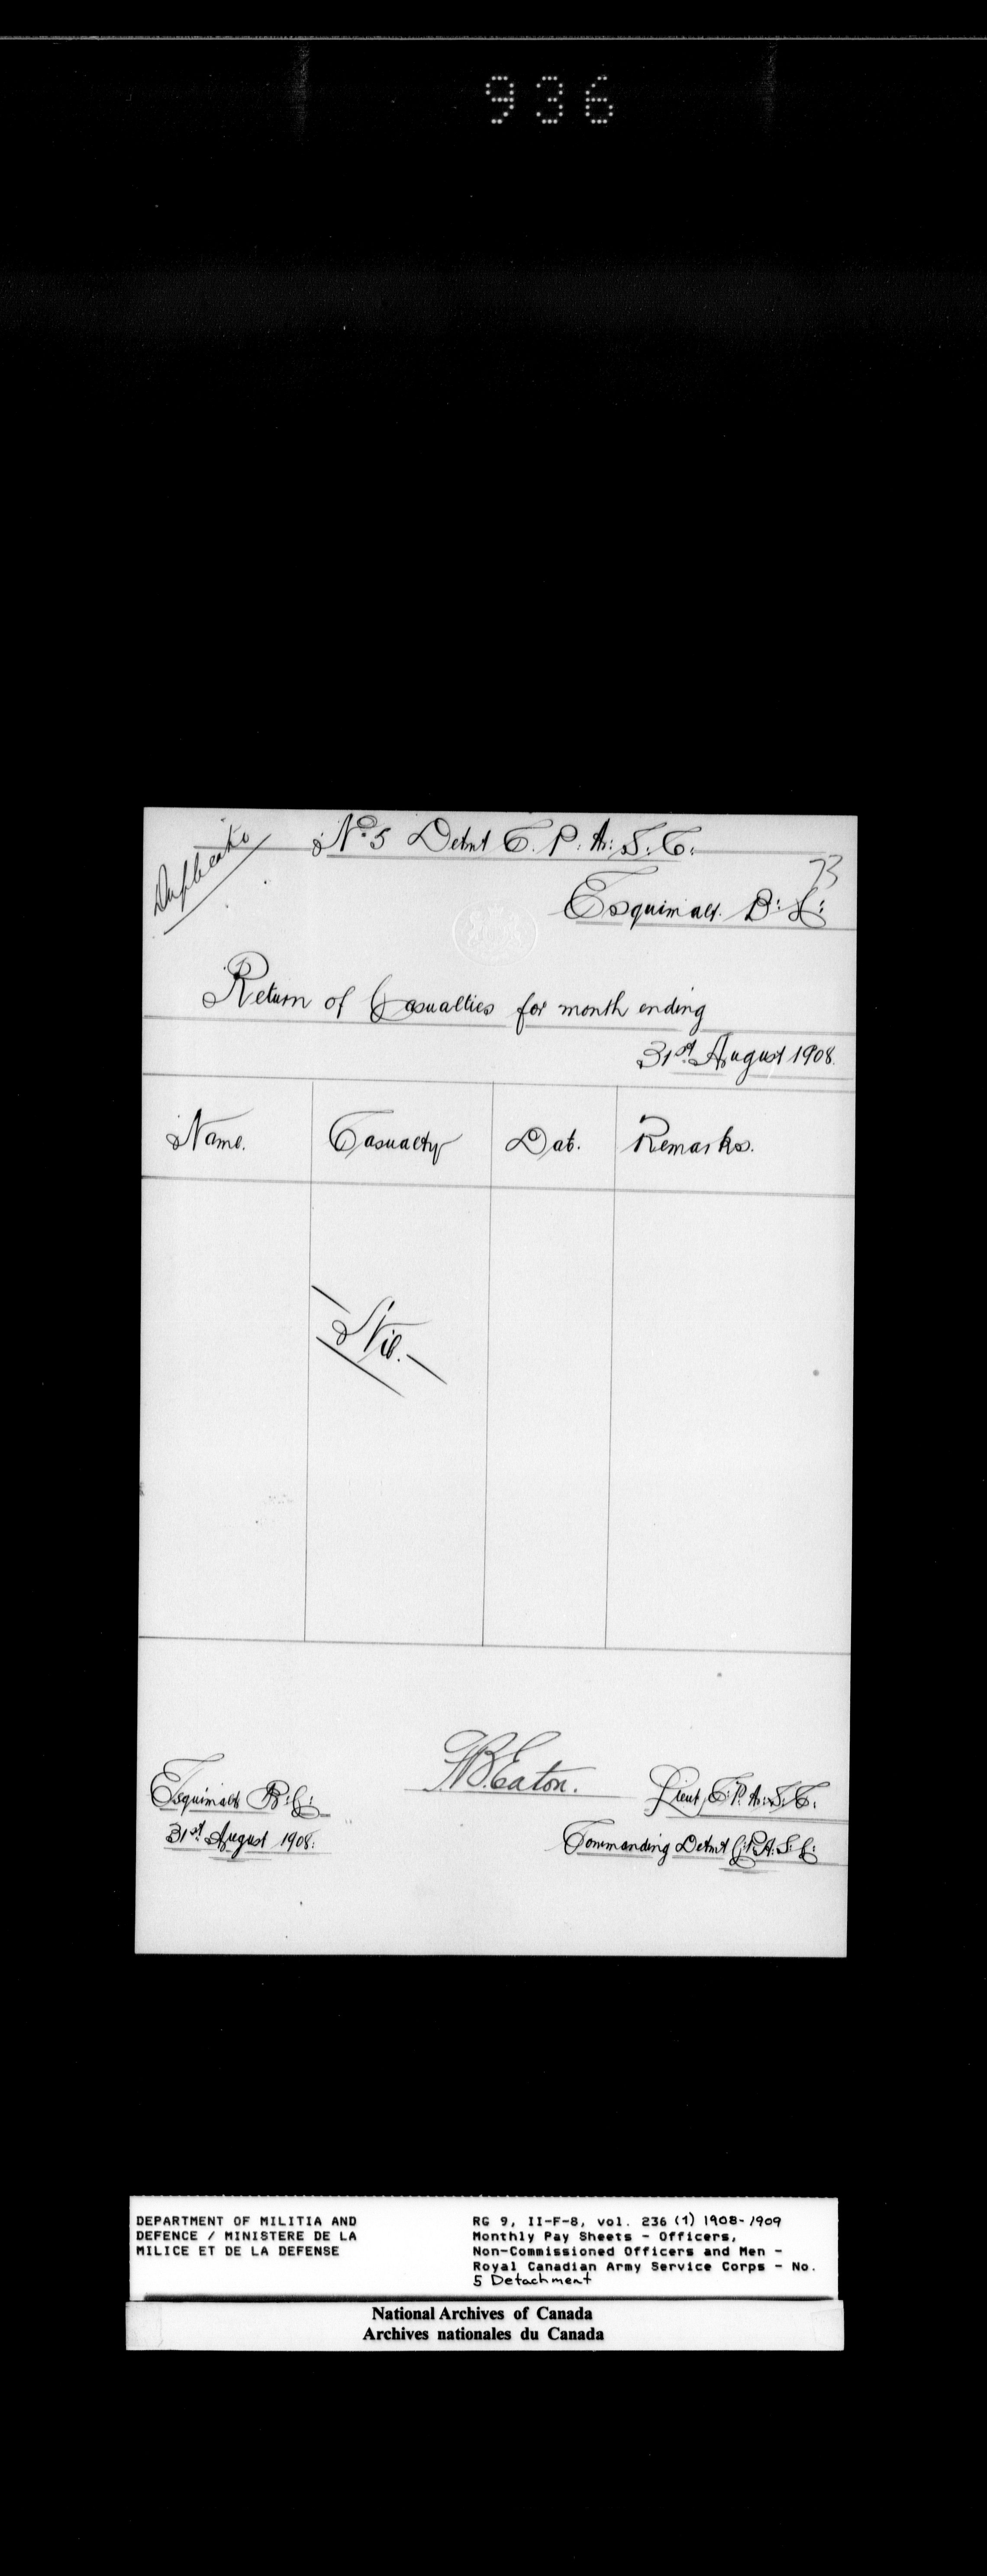 936
Duplicate
No. 5 Detmt C. P. A. S. C.
73
Esquimalt. B. C.
Return of Casualties for month ending
31st August 1908.
Name. Casualty Date. Remarks.
- Nil. -
Eaton.
Esquimalt B. C.
Lieut, C. P. A. S. C.
31st August 1908.
Commanding Detmt C. P. A. S. C.
DEPARTMENT OF MILITIA AND
DEFENCE / MINISTERE DE LA
MILICE ET DE LA DEFENSE
RG 9, II-F-8, vol. 236 (1) 1908-1909
Monthly Pay Sheets - Officers,
Non-Commissioned Officers and Men -
Royal Canadian Army Service Corps - No.
5 Detachment
National Archives of Canada
Archives nationales du Canada